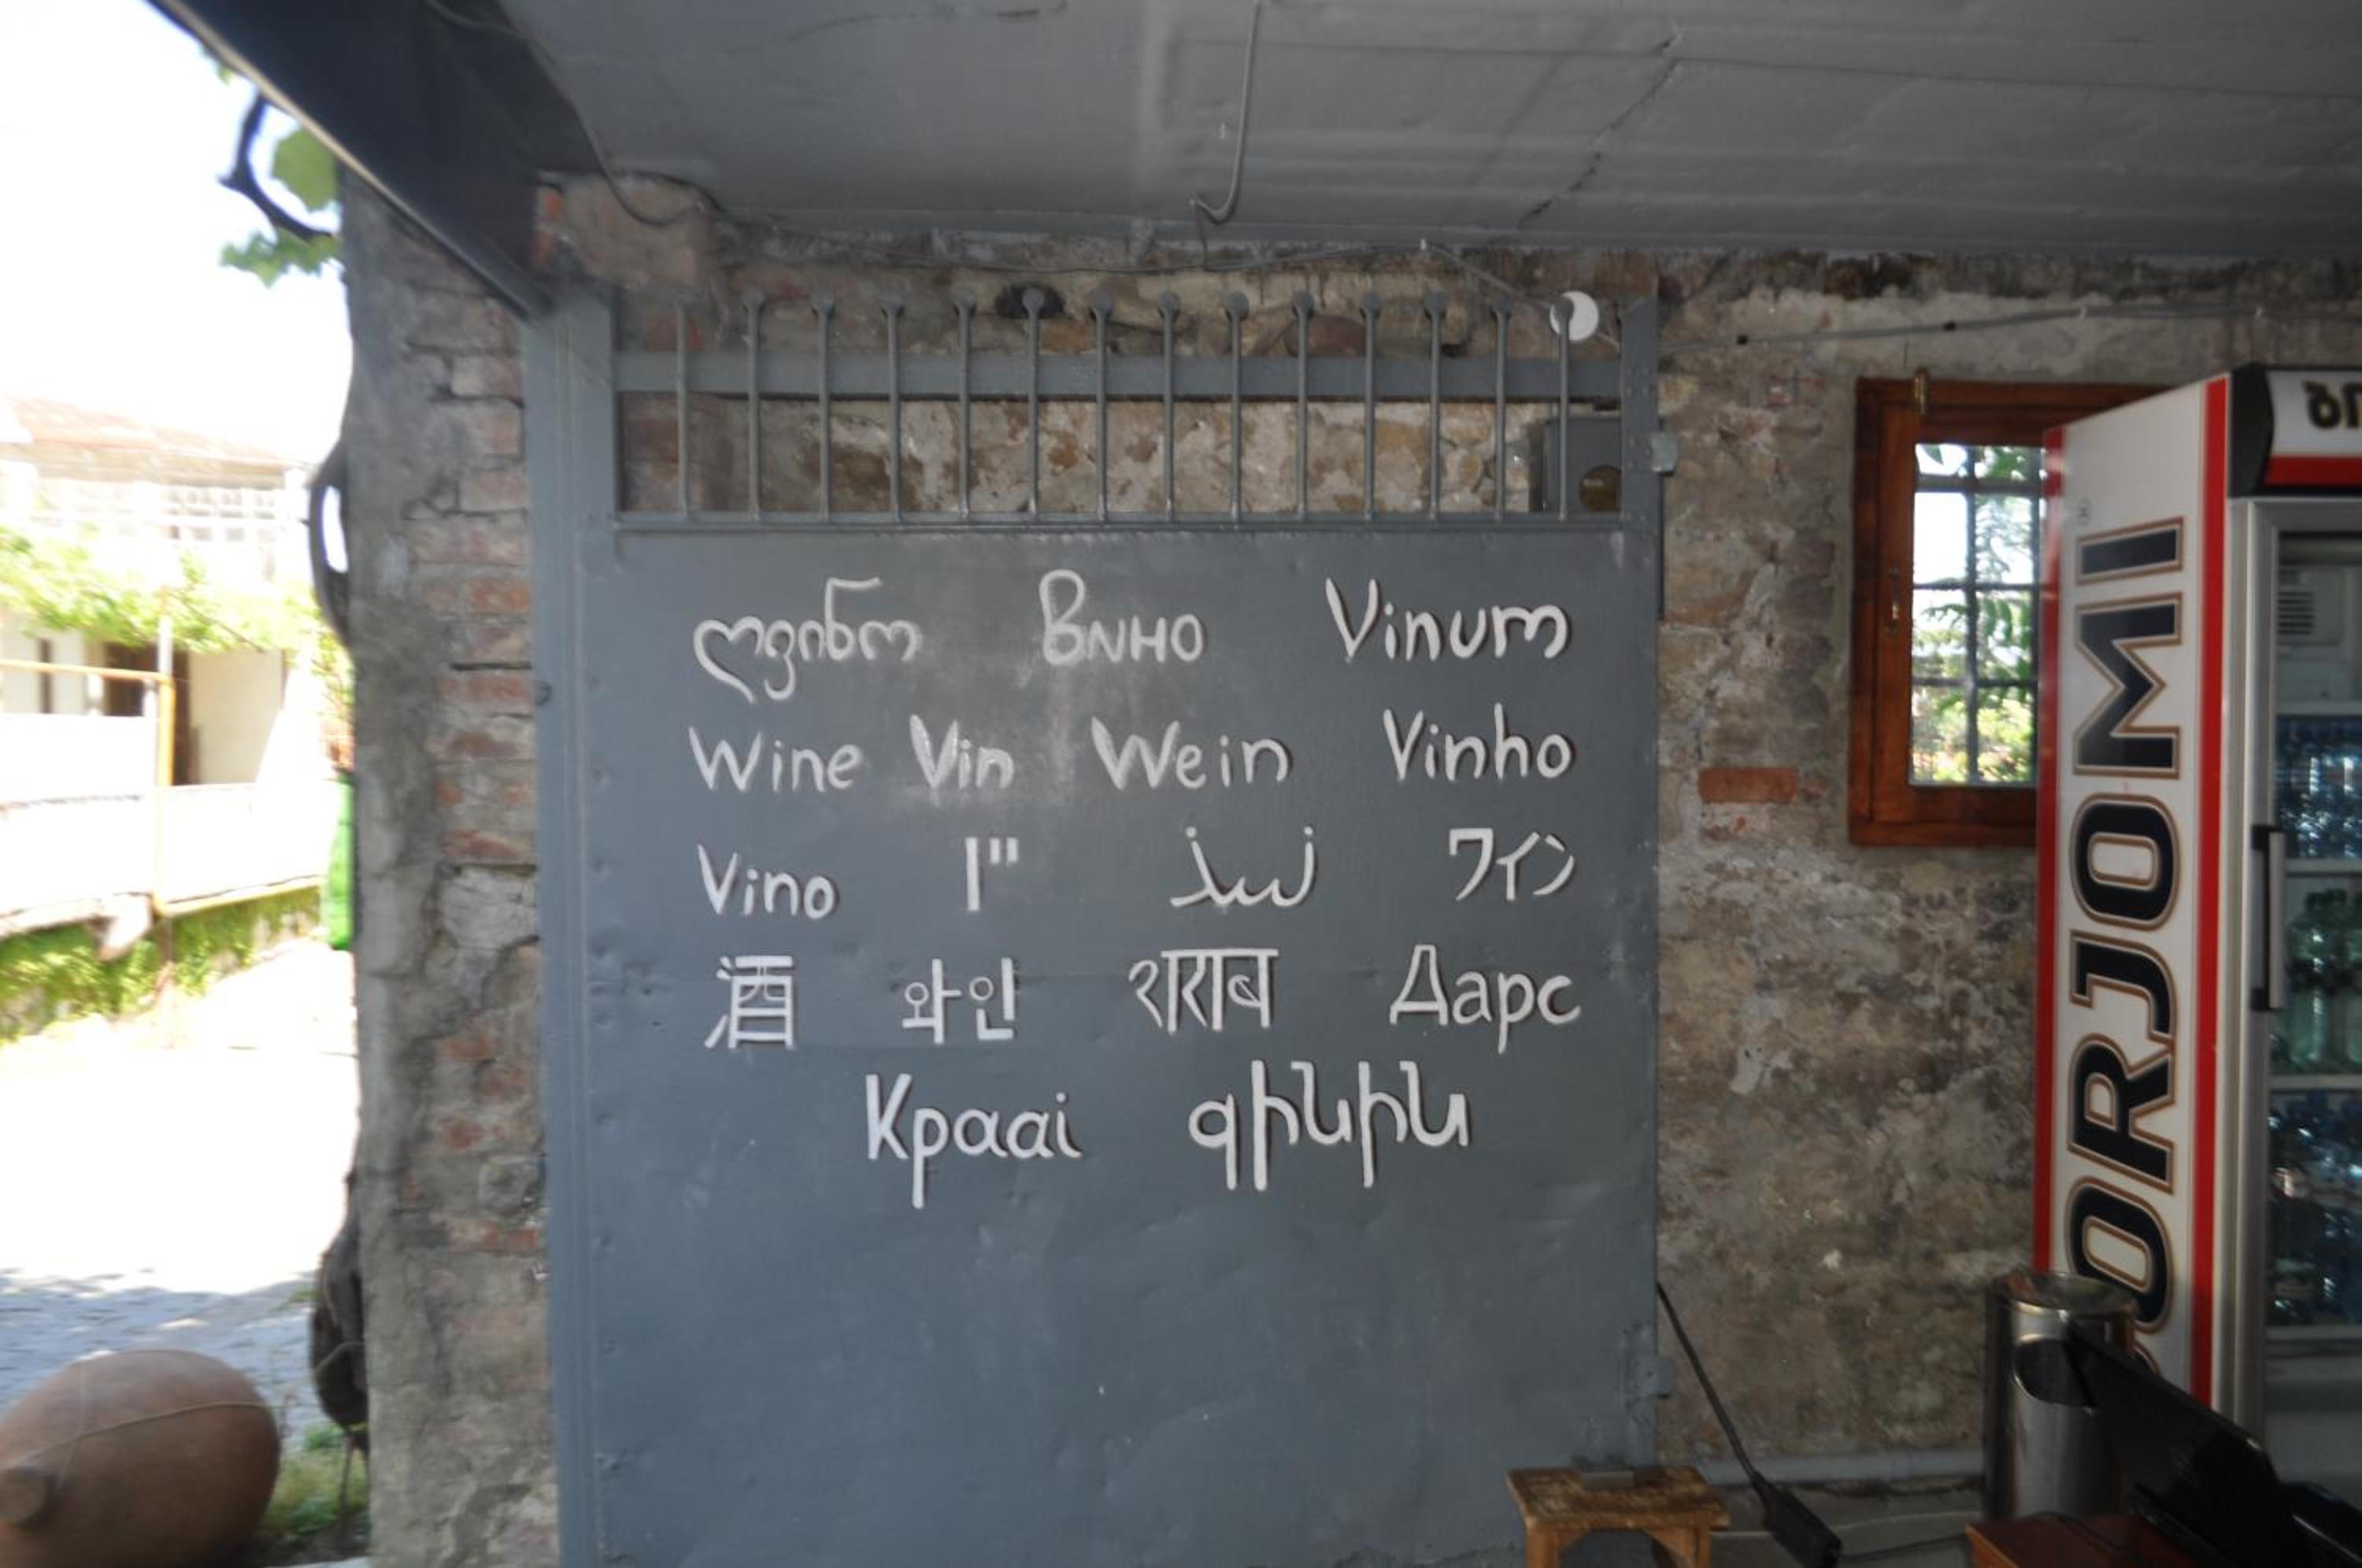 ღვინო Вино Vinum
Wine Vin Wein Vinho
Vino יין نبيذ ワイン
酒 와인 शराब Дарс
Крааі գինին
BORJOMI